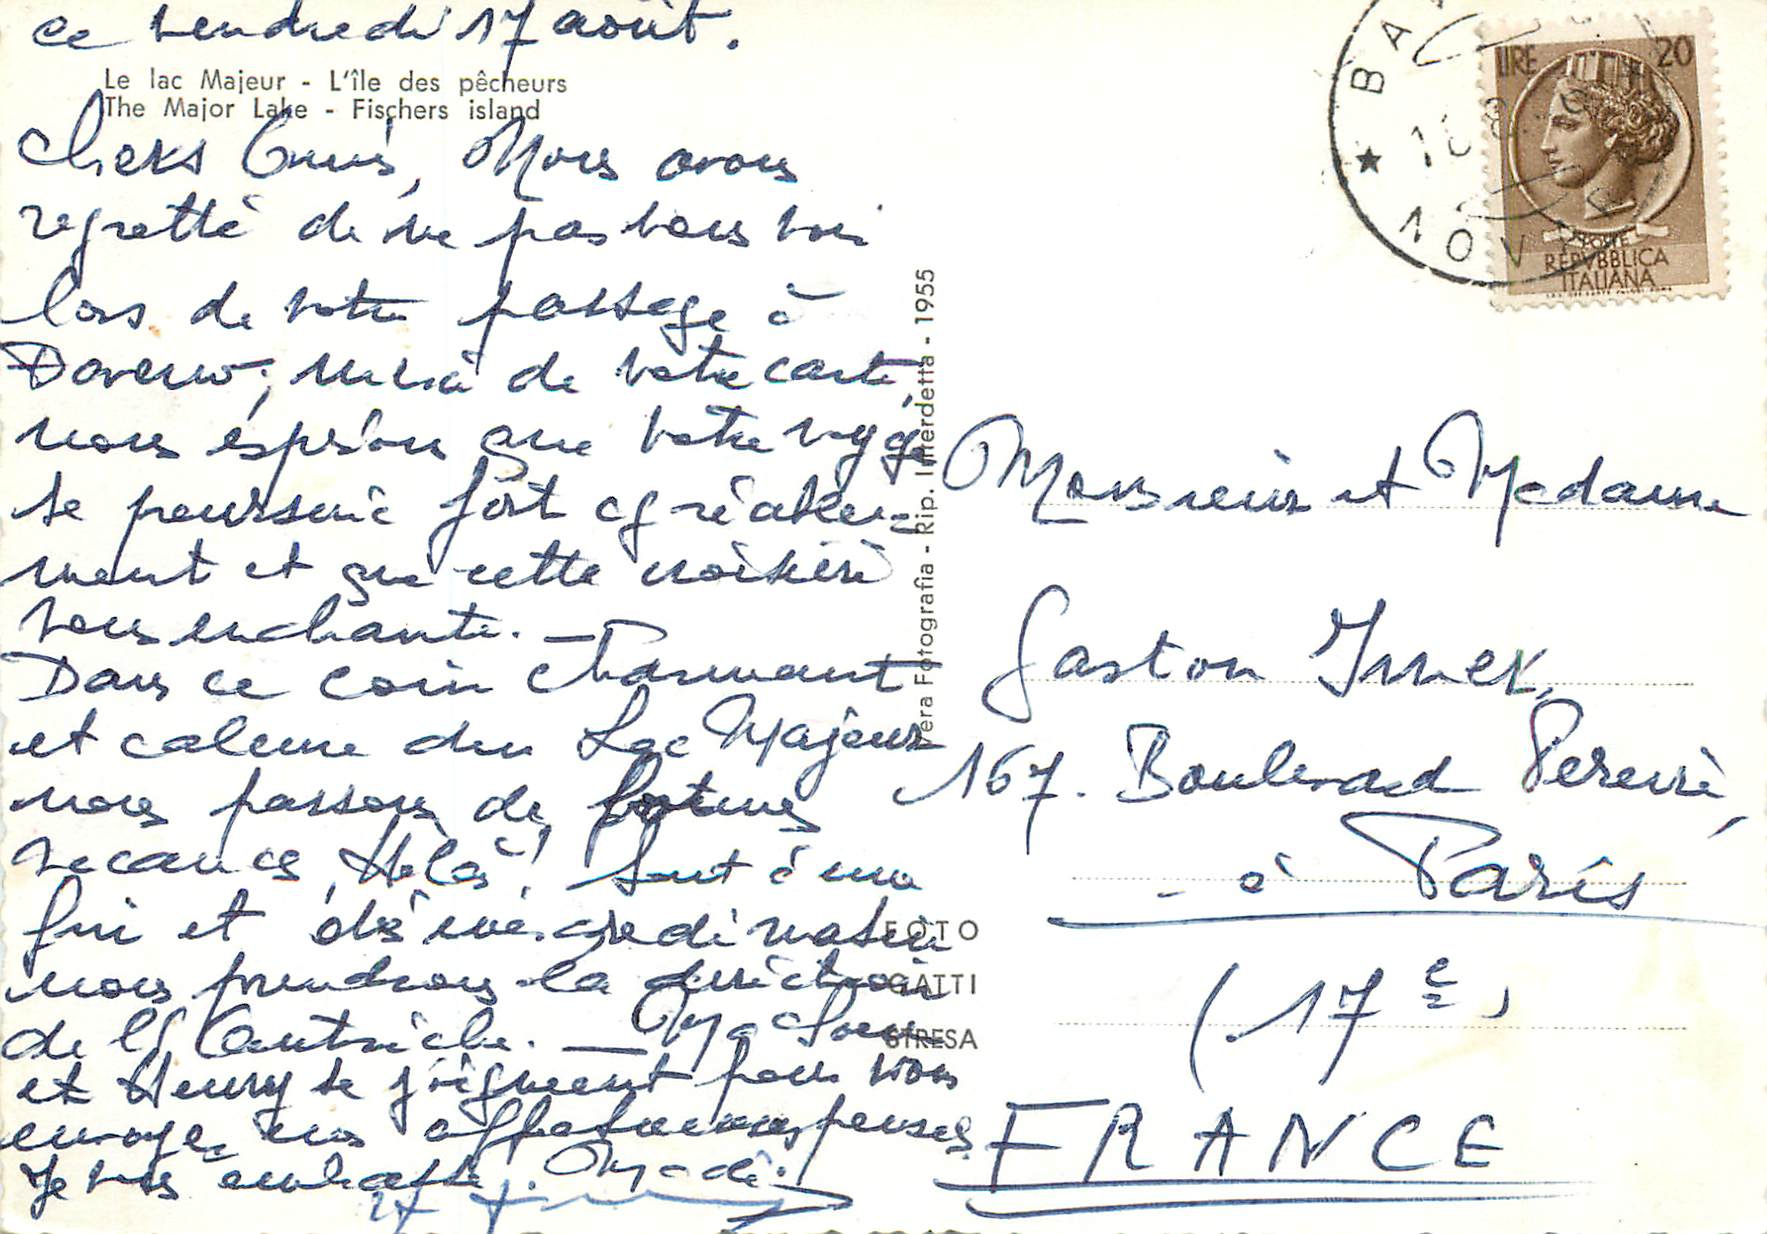 ce vendredi 17 août.
Le lac Majeur - L'île des pêcheurs
The Major Lake - Fischers island
Chers Amis, Nous avons
regretté de ne pas vous voir
lors de votre passage à
merci de votre carte,
nous espérons que votre voyage
se poursuit fort agréable-
ment et que cette croisière
vous enchante. —
Dans ce coin charmant
et calme du Lac Majeur
nous passons de bonnes
vacances, Hélas! Sont à ma
fin et dès mercredi matin
nous prendrons la direction
de l'Autriche. — Ma soeur
et Henry se joignent pour vous
envoyer nos affectueuses pensées
Je vous embrasse. Mady
Vera Fotografia - Rip. Interdetta - 1955
FOTO
GATTI
STRESA
LIRE 20
POSTE
REPVBBLICA
ITALIANA
BA
NOV
Monsieur et Madame
Gaston
167. Boulevard Pereire,
- à Paris
(17e)
FRANCE